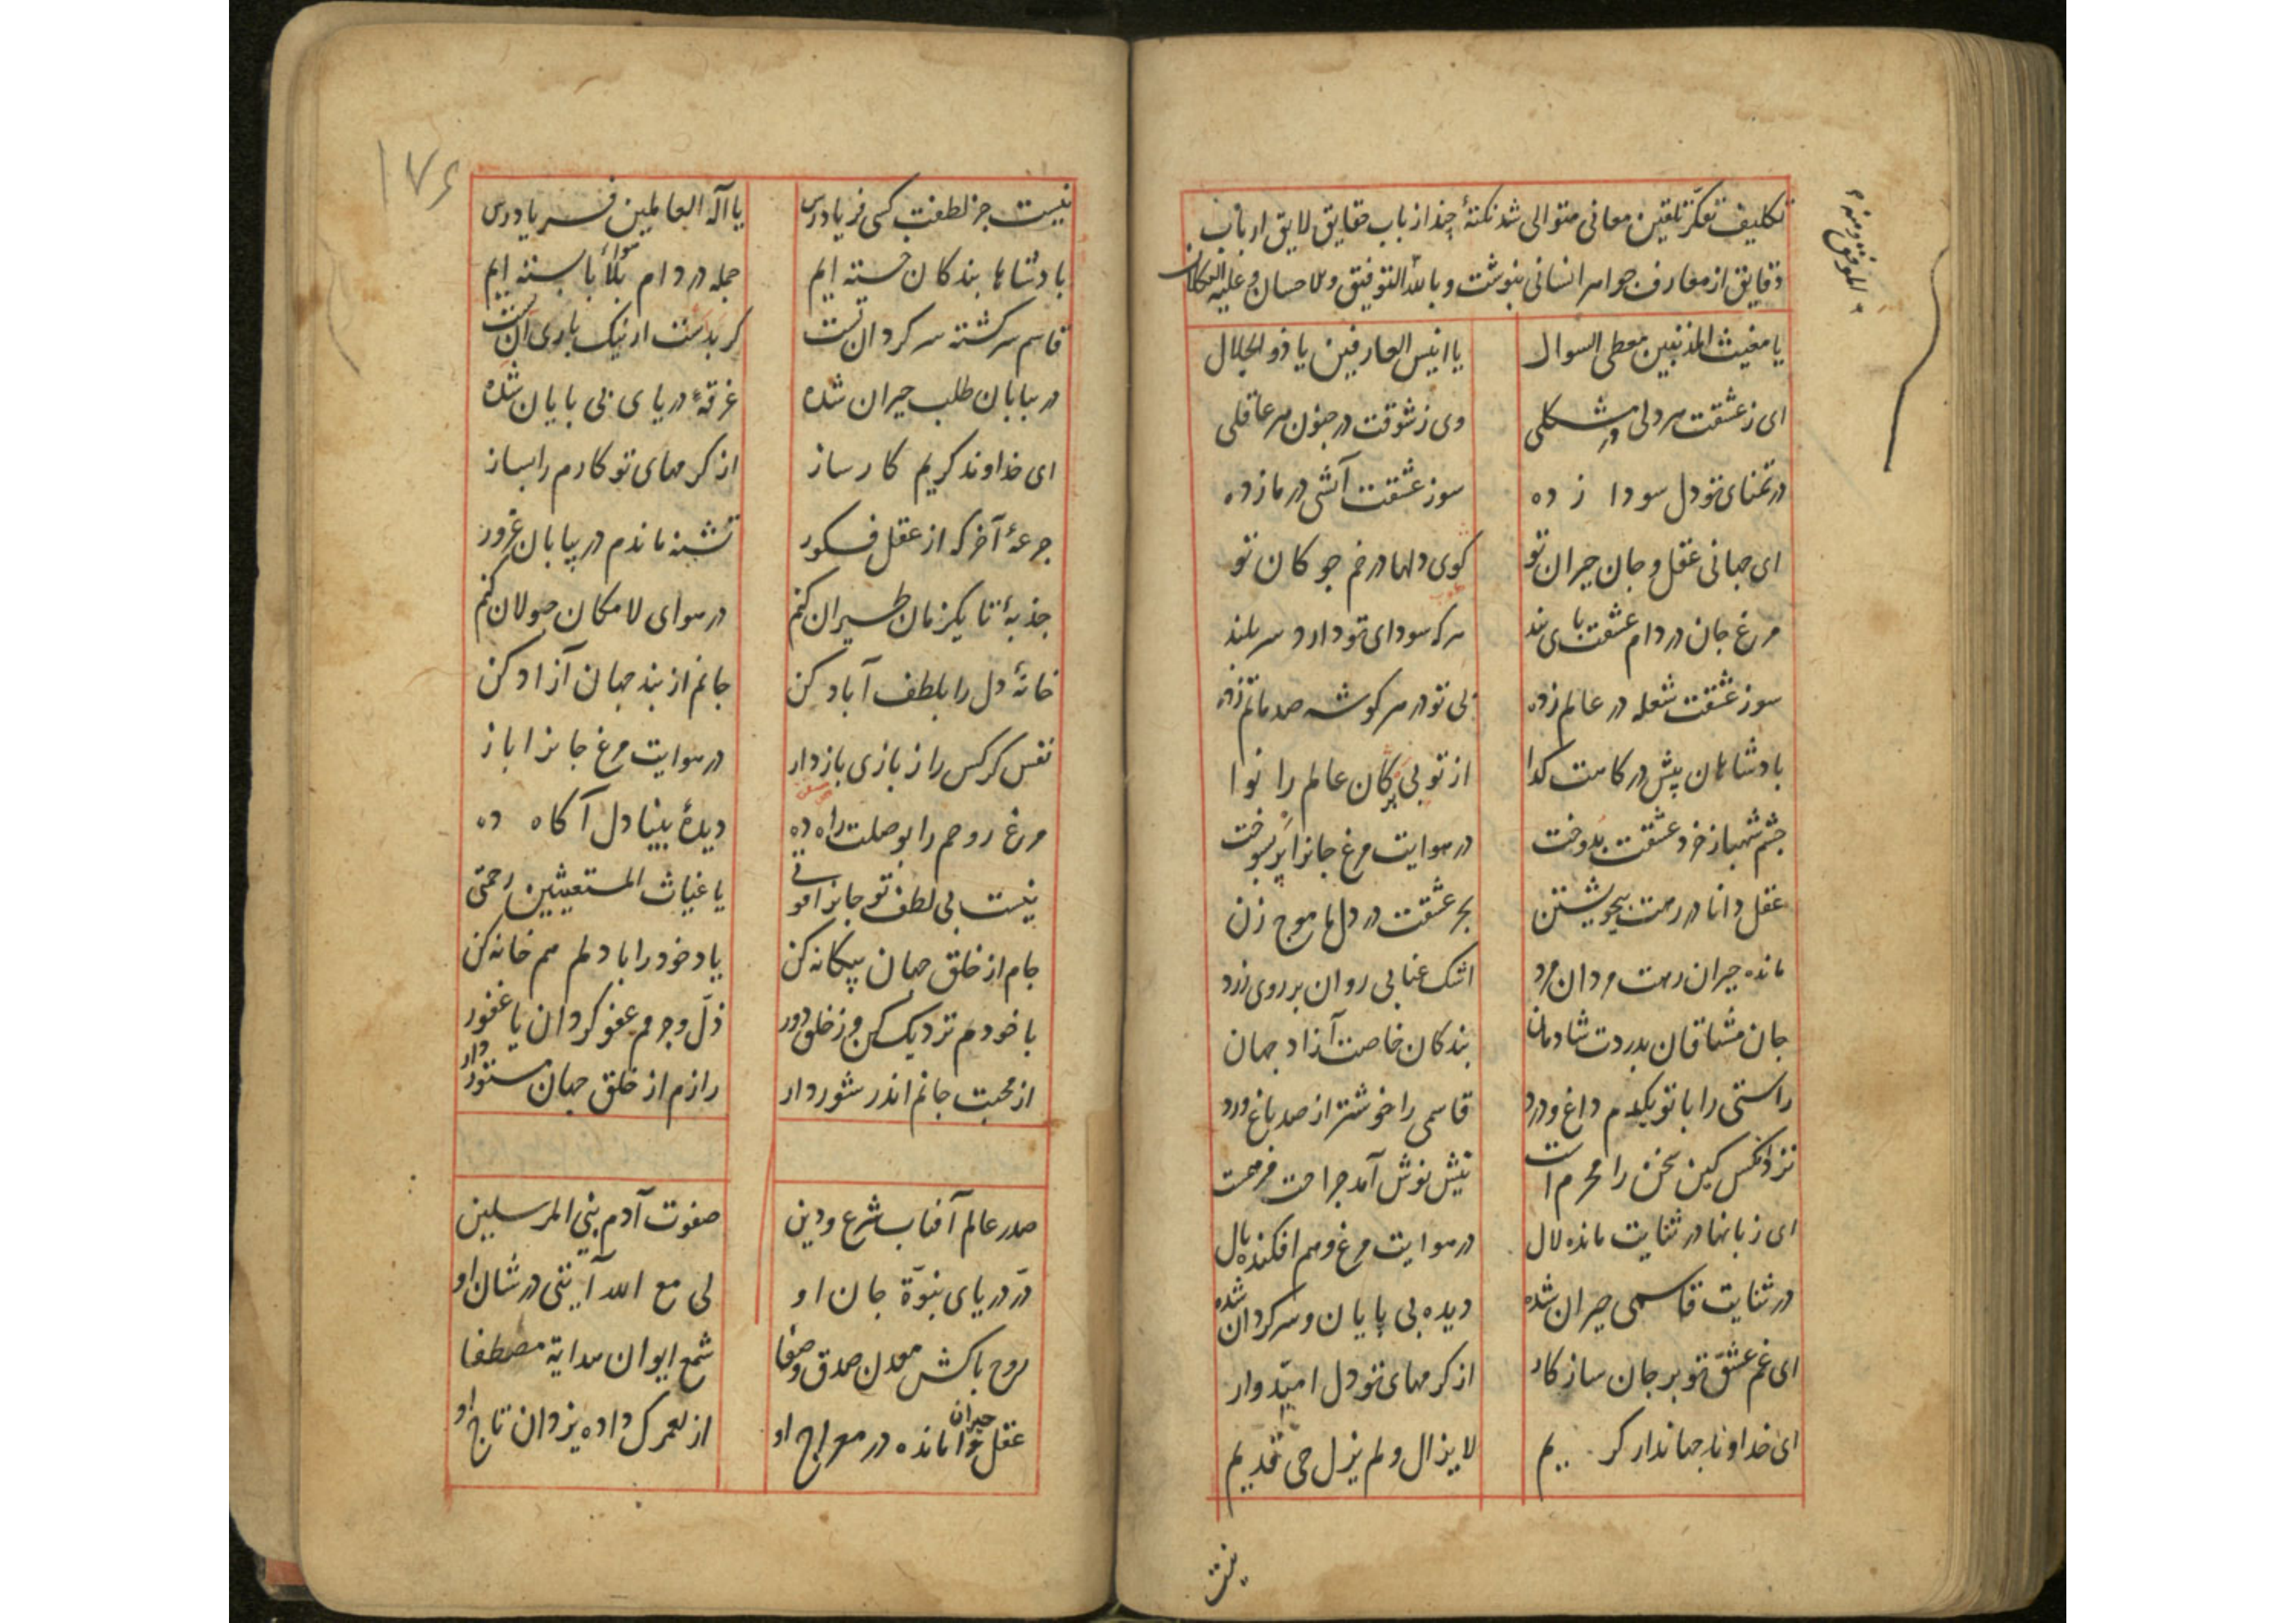 تکلیف تفکر تلقین معانی متوالی شد نکتهٔ چند از باب حقایق لایق ارباب
دقایق از معارف جواهر انسانی بنوشت و بالله التوفیق و الاحسان و علیه التکلان
یا مغیث المذنبین معطی السوال یا انیس العارفین یا ذو الجلال
ای ز عشقت هر دلی در مشکلی وی ز شوقت در جنون هر عاقلی
در تمنای تو دل سودا زده سوز عشقت آتشی در ما زده
ای جهانی عقل و جان حیران تو کوی دلها در خم جوکان تو
مرغ جان در دام عشقت پای بند هر که سودای تو دارد سر بلند
سوز عشقت شعله در عالم زده بی تو در هر کوشه صد ماتم زده
بادشاهان پیش درکاهت کدا از تو بی برکان عالم را نوا
چشم شهباز خرد عشقت بدوخت در هوایت مرغ جانرا پر بسوخت
عقل دانا در رهت بیخویشتن بحر عشقت در دل ما موج زن
مانده حیران رهت مردان مرد اشک عنابی روان بر روی زرد
جان مشتاقان بدردت شادمان بندکان خاصت آزاد جهان
راستی را با تو یکدم داغ و درد قاسمی را خوشتر از صد باغ ورد
نزد انکس کین سخن را محرم است نیش نوش آمد جراحت مرهمست
ای زبانها در ثنایت مانده لال در هوایت مرغ وهم افکنده بال
در ثنایت قاسمی حیران شده دیده بی پایان و سرکردان شده
ای غم عشق تو بر جان سازکار از کرمهای تو دل امیدوار
ای خداوند جهاندار کریم لا یزال و لم یزل حی قدیم
نیست
۱۷۶
نیست جز لطفت کسی فریادرس یا اله العالمین فریادرس
بادشاها بندکان خسته ایم جمله در دام بلا بابسته ایم
هوا
قاسم سرکشته سرکردان تست کر بدست ار نیک باری آن تست
در بیابان طلب حیران شده غرقهٔ دریای بی بایان شده
ای خداوند کریم کارساز از کرمهای تو کارم را بساز
جرعهٔ آخر که از عقل فکور تشنه ماندم در بیابان غرور
جذبهٔ تا یکزمان طیران کنم در هوای لامکان جولان کنم
خانهٔ دل را بلطف آباد کن جانم از بند جهان آزاد کن
نفس کرکس را ز بازی باز دار در هوایت مرغ جانرا باز
مرغ روحم را بوصلت راه ده دیدهٔ بینا دل آکاه ده
نیست بی لطف تو جانرا قوتی یا غیاث المستغیثین رحمتی
جام از خلق جهان بیکانه کن یاد خود را با دلم هم خانه کن
با خودم نزدیک کن وز خلق دور ذل و جرمم عفو کردان یا غفور
از محبت جانم اندر شور دار رازم از خلق جهان مستور دار
صدر عالم آفتاب شرع و دین صفوت آدم نبی المرسلین
در دریای نبوة جان او لی مع الله آیتی در شان او
روح باکش معدن صدق و صفا شمع ایوان هدایة مصطفا
عقل حیران مانده در معراج او از لعمرک داده یزدان تاج او